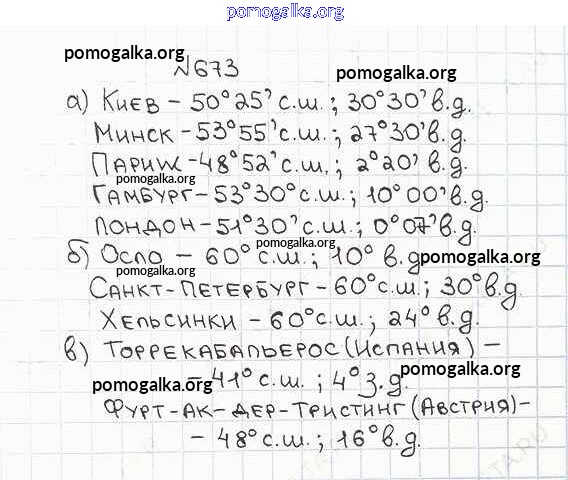 pomogalka.org
pomogalka.org
№673
pomogalka.org
а) Киев – 50°25' с.ш.; 30°30' в.д.
Минск – 53°55' с.ш.; 27°30' в.д.
Париж – 48°52' с.ш.; 2°20' в.д.
pomogalka.org
Гамбург – 53°30° с.ш.; 10°00' в.д.
pomogalka.org
Лондон – 51°30' с.ш.; 0°07' в.д.
pomogalka.org
б) Осло – 60° с.ш.; 10° в.д.
pomogalka.org
pomogalka.org
Санкт-Петербург – 60° с.ш.; 30° в.д.
Хельсинки – 60° с.ш.; 24° в.д.
в) Торрекабальерос (Испания) –
pomogalka.org
– 41° с.ш.; 4° з.д.
pomogalka.org
Фурт-ак-дер-Тристинг (Австрия) –
– 48° с.ш.; 16° в.д.